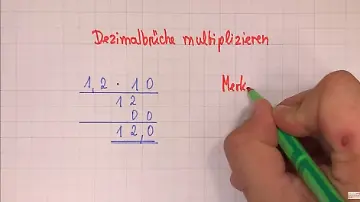 Dezimalbrüche multiplizieren
1,2 · 10
Merk
12
00
12,0